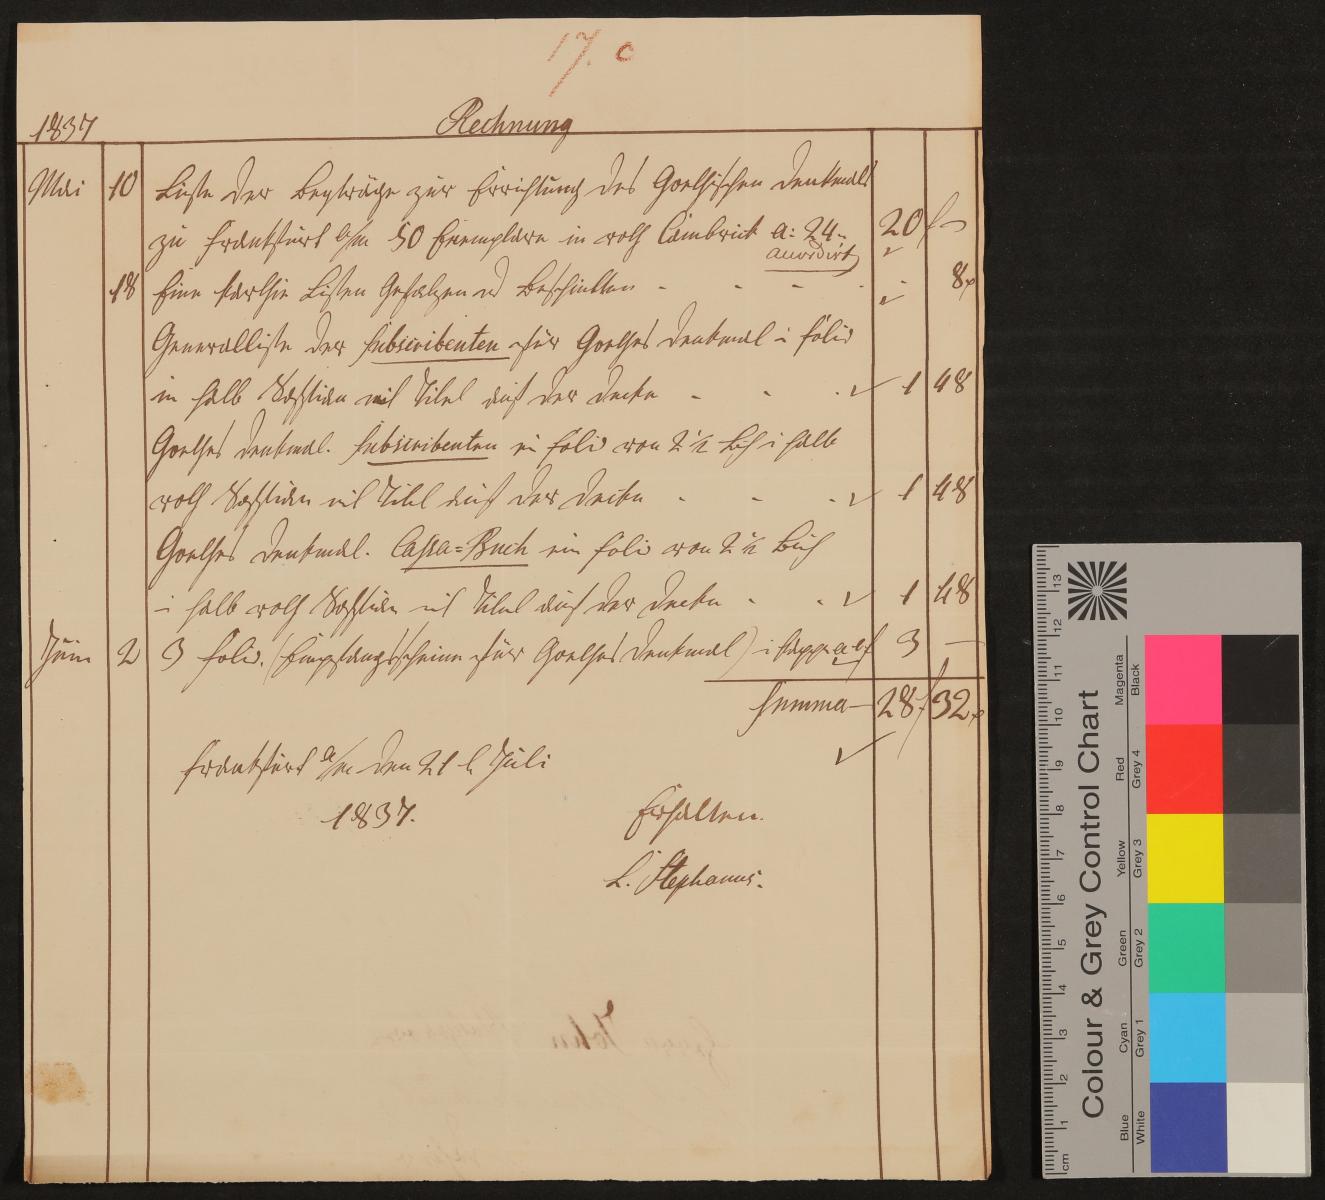 17. c
1837 Rechnung
Mai 10 Liste der Beyträge zur Errichtung des Goethischen Denkmals
zu Frankfurt a/m 50 Exemplare in roth Cambrick a: 24 20 f –
accordirt
18 Eine Parthie Listen Gefalzen u Beschnitten - - - - - 8x
Generalliste der Subscribenten für Goethes Denkmal i folio
in halb mit Titel auf der Decke - - - 1 48
Goethes Denkmal. Subscribenten in folio von 2 1/2 Buch i halb
roth mit Titel auf der Decke - - - 1 48
Goethes Denkmal. Cassa=Buch in folio von 2 1/2 Buch
i halb roth mit Titel auf der Decke - - 1 48
Juni 2 3 folio. (Empfangsscheine für Goethes Denkmal) i 3 —
Summa — 28 f 32 x
Frankfurt a/m den 21 t Juli
1837.
Erhalten.
L. Stephanus.
John
Colour & Grey Control Chart
Blue Cyan Green Yellow Red Magenta
White Grey 1 Grey 2 Grey 3 Grey 4 Black
cm 1 2 3 4 5 6 7 8 9 10 11 12 13